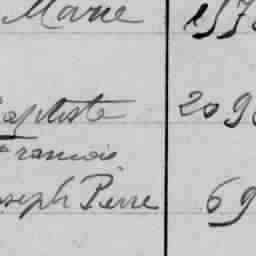 Marie 157
Baptiste 209
Francois
Joseph Pierre 69